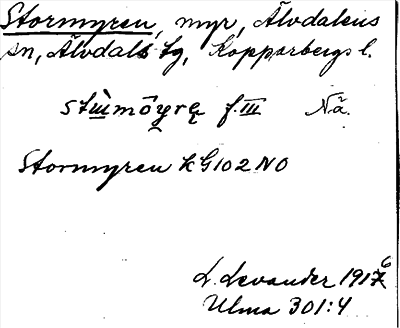 Stormyren, myr, Älvdalens
sn, Älvdals tg, Kopparbergs l.
f. III Nä.
Stormyren kG102NO
L. Levander 1916
Ulma 301:4